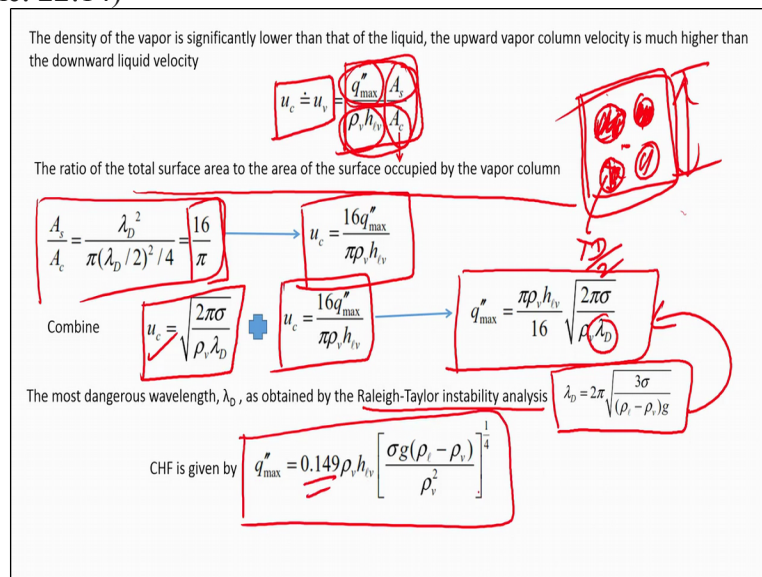 The density of the vapor is significantly lower than that of the liquid, the upward vapor column velocity is much higher than
the downward liquid velocity
u_c ≐ u_v = q″_max A_s / ρ_v h_ℓv A_c
The ratio of the total surface area to the area of the surface occupied by the vapor column
A_s / A_c = λ_D² / π(λ_D /2)² /4 = 16 / π
u_c = 16q″_max / πρ_v h_ℓv
Combine
u_c = √(2πσ / ρ_v λ_D)
u_c = 16q″_max / πρ_v h_ℓv
q″_max = πρ_v h_ℓv / 16 √(2πσ / ρ_v λ_D)
The most dangerous wavelength, λ_D , as obtained by the Raleigh-Taylor instability analysis
λ_D = 2π √(3σ / (ρ_ℓ − ρ_v)g)
CHF is given by
q″_max = 0.149ρ_v h_ℓv [σg(ρ_ℓ − ρ_v) / ρ_v²]^(1/4)